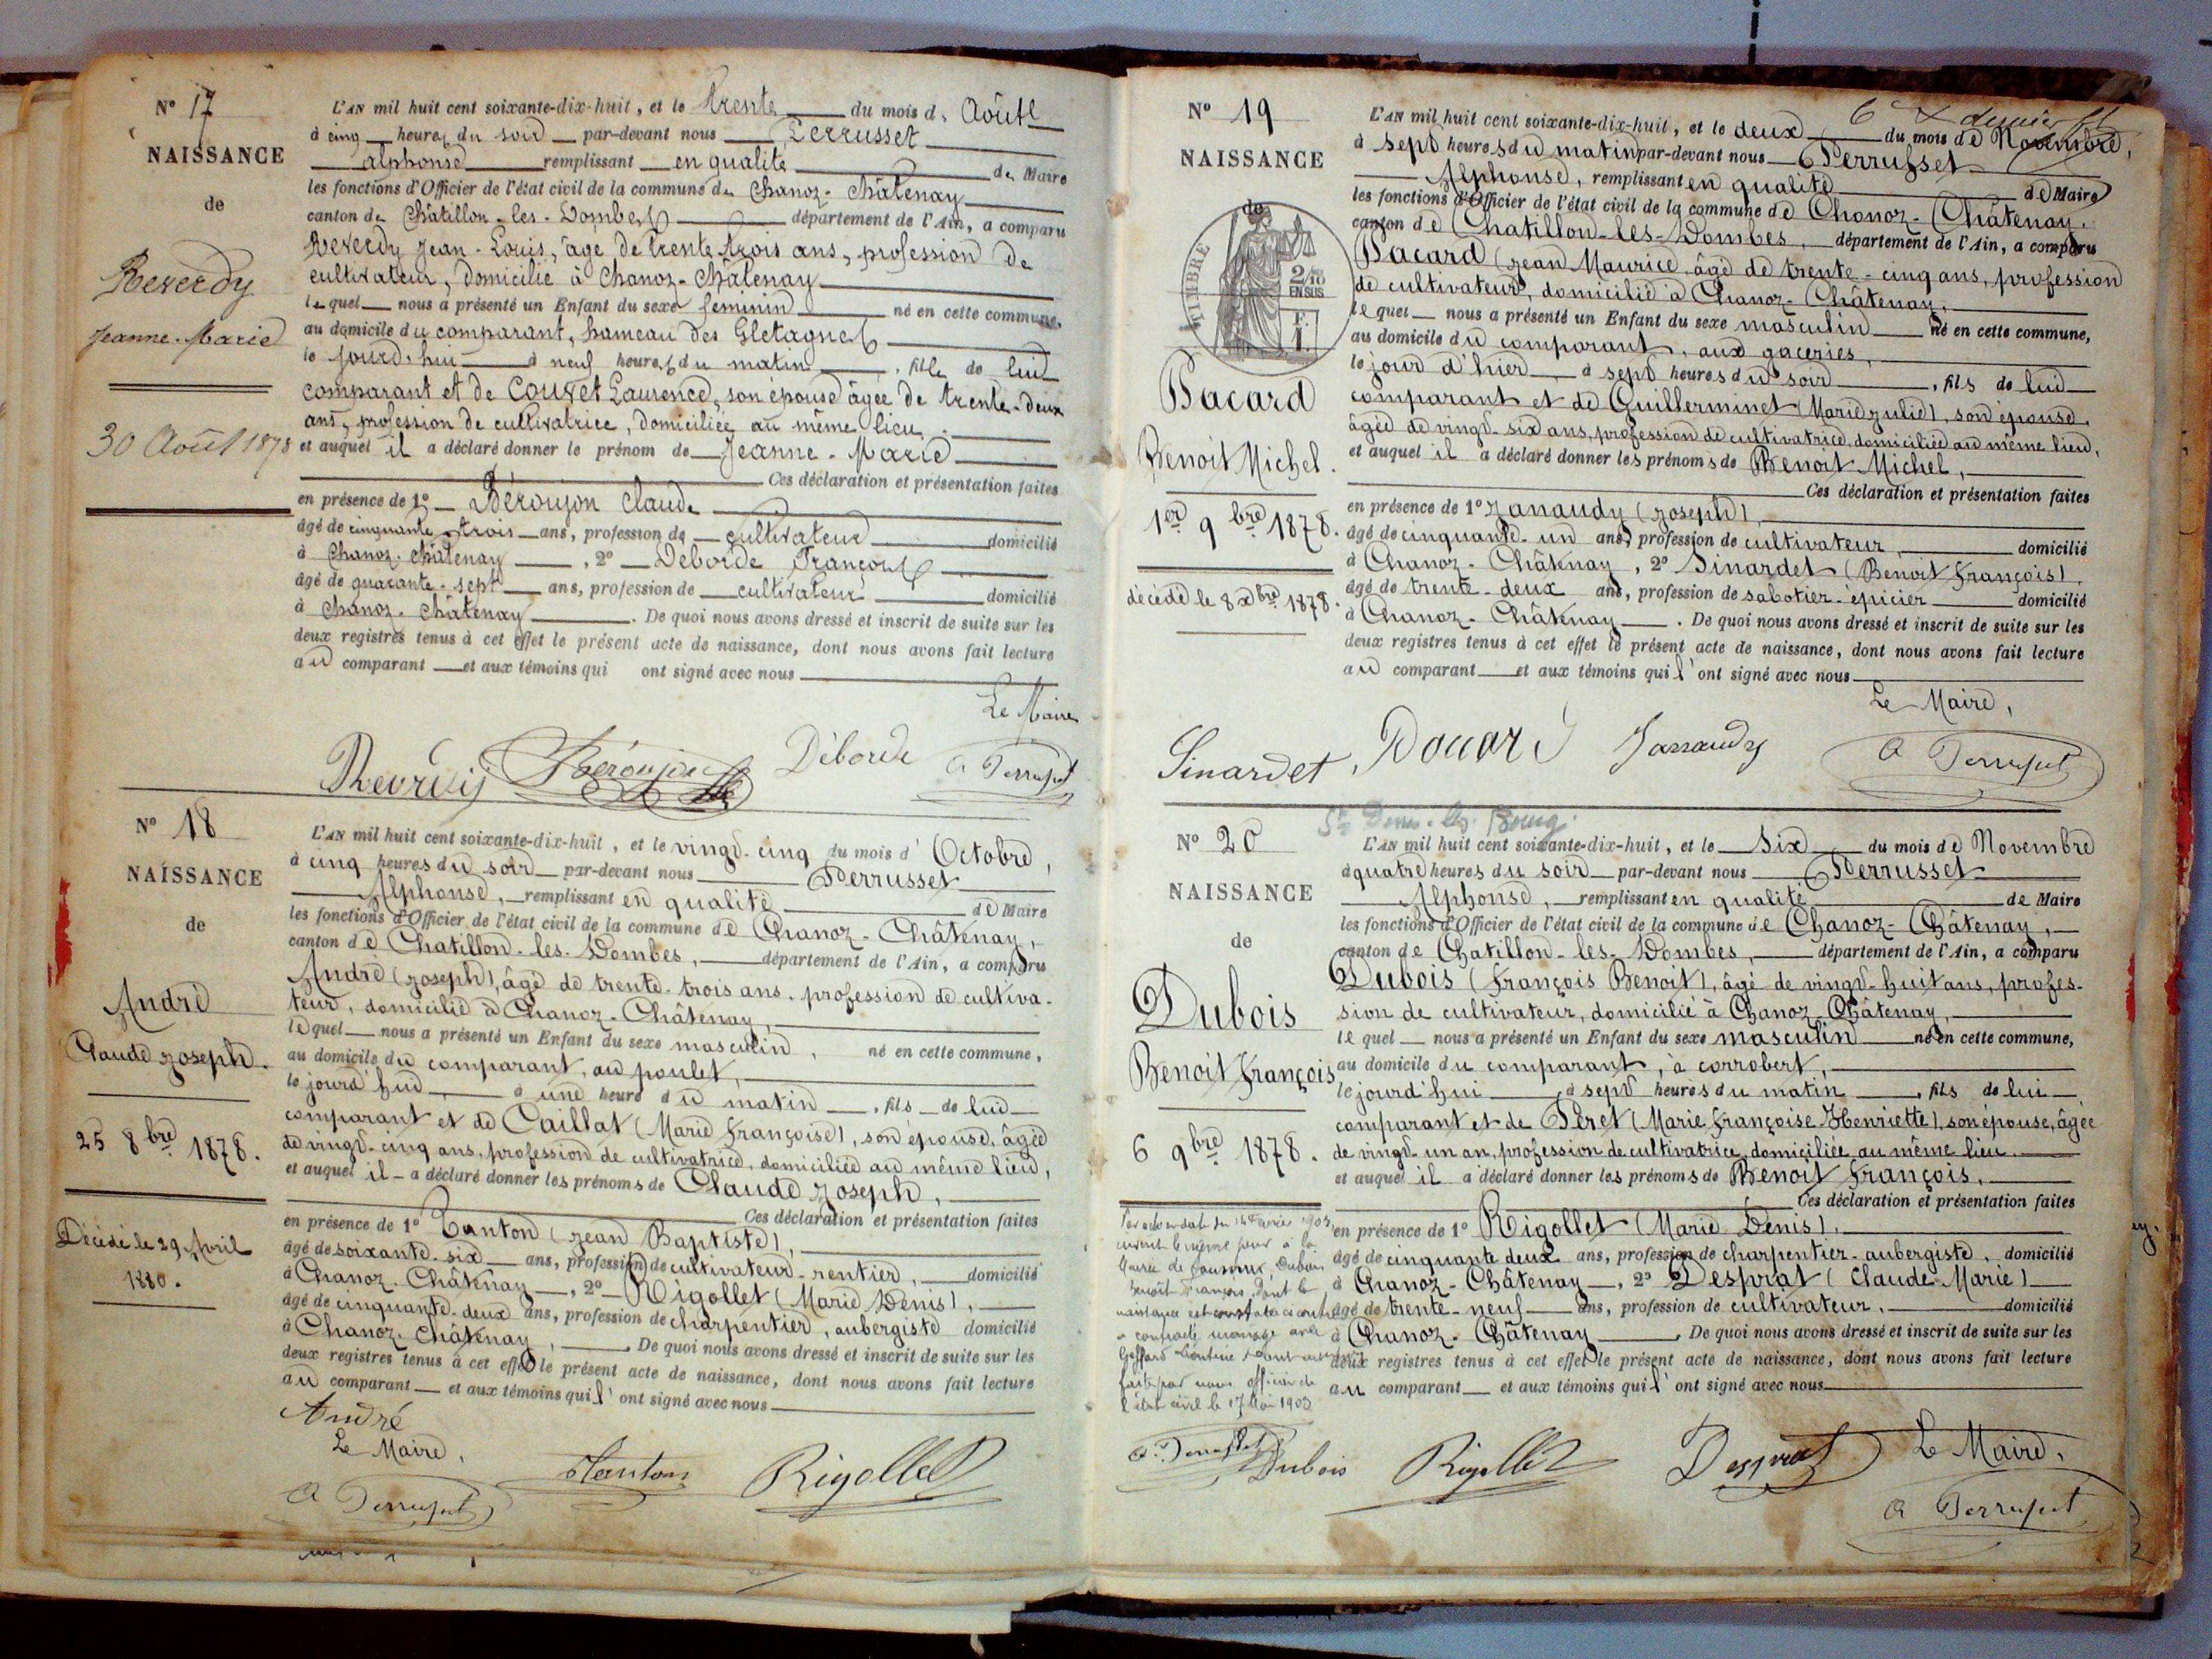 N° 17
NAISSANCE
de
Reverdy
Jeanne-Marie
30 Août 1878
L'AN mil huit cent soixante-dix-huit, et le trente du mois d Août
à cinq heures du soir par-devant nous Perrusset
alphonse remplissant en qualité de Maire
les fonctions d'Officier de l'état civil de la commune de Chanoz-Châtenay
canton de Châtillon-les-Dombes département de l'Ain, a comparu
Reverdy Jean-Louis, âgé de trente trois ans, profession de
cultivateur, domicilié à Chanoz-Châtenay
lequel nous a présenté un Enfant du sexe feminin né en cette commune,
au domicile du comparant, hameau des Gletagnes
le jourd'hui à neuf heures du matin, fille de lui
comparant et de Couvet Laurence, son épouse âgée de trente-deux
ans, profession de cultivatrice, domiciliée au même lieu.
et auquel il a déclaré donner le prénom de Jeanne-Marie
Ces déclaration et présentation faites
en présence de 1° Béroujon Claude
âgé de cinquante trois ans, profession de cultivateur domicilié
à Chanoz-Châtenay, 2° Deborde François
âgé de quarante-sept ans, profession de cultivateur domicilié
à Chanoz-Châtenay. De quoi nous avons dressé et inscrit de suite sur les
deux registres tenus à cet effet le présent acte de naissance, dont nous avons fait lecture
au comparant et aux témoins qui ont signé avec nous
Le Maire
Béroujon Déborde A Perrusset
N° 18
NAISSANCE
de
André
Claude Joseph.
25 8bre 1878.
Décédé le 29 Avril
1880.
L'AN mil huit cent soixante-dix-huit, et le vingt-cinq du mois d'Octobre,
à cinq heures du soir par-devant nous Perrusset
Alphonse, remplissant en qualité de Maire
les fonctions d'Officier de l'état civil de la commune de Chanoz-Châtenay,
canton de Chatillon-les-Dombes, département de l'Ain, a comparu
André (Joseph), âgé de trente-trois ans, profession de cultiva-
teur, domicilié à Chanoz-Châtenay,
lequel nous a présenté un Enfant du sexe masculin, né en cette commune,
au domicile du comparant, au poulet,
le jourd'hui à une heure du matin, fils de lui
comparant et de Caillat (Marie Françoise), son épouse, âgée
de vingt-cinq ans, profession de cultivatrice, domiciliée au même lieu,
et auquel il a déclaré donner les prénoms de Claude Joseph,
Ces déclaration et présentation faites
en présence de 1° Tanton (Jean Baptiste),
âgé de soixante-six ans, profession de cultivateur-rentier, domicilié
à Chanoz-Châtenay, 2° Rigollet (Marie Denis),
âgé de cinquante-deux ans, profession de charpentier, aubergiste domicilié
à Chanoz-Châtenay, De quoi nous avons dressé et inscrit de suite sur les
deux registres tenus à cet effet le présent acte de naissance, dont nous avons fait lecture
au comparant et aux témoins qui l'ont signé avec nous
André
Le Maire,
A Perrusset Tanton Rigollet
N° 19
NAISSANCE
de
TIMBRE
2/10
EN SUS
F.
1.
Pacard
Benoit Michel.
1er 9bre 1878.
décédé le 8 xbre 1878.
L'AN mil huit cent soixante-dix-huit, et le deux du mois de Novembre,
à sept heures du matin par-devant nous Perrusset
Alphonse, remplissant en qualité de Maire
les fonctions d'Officier de l'état civil de la commune de Chanoz-Châtenay.
canton de Chatillon-les-Dombes, département de l'Ain, a comparu
Pacard (Jean Maurice, âgé de trente-cinq ans, profession
de cultivateur, domicilié à Chanoz-Châtenay,
lequel nous a présenté un Enfant du sexe masculin né en cette commune,
au domicile du comparant, aux gaceries,
le jour d'hier à sept heures du soir, fils de lui
comparant et de Guillerminet (Marie Julie), son épouse,
âgée de vingt-six ans, profession de cultivatrice, domiciliée au même lieu,
et auquel il a déclaré donner les prénoms de Benoit Michel,
Ces déclaration et présentation faites
en présence de 1° Janaudy (Joseph),
âgé de cinquante-un ans, profession de cultivateur, domicilié
à Chanoz-Châtenay, 2° Sinardet (Benoit François),
âgé de trente-deux ans, profession de sabotier-épicier domicilié
à Chanoz-Châtenay. De quoi nous avons dressé et inscrit de suite sur les
deux registres tenus à cet effet le présent acte de naissance, dont nous avons fait lecture
au comparant et aux témoins qui l'ont signé avec nous
Le Maire,
Sinardet A Perrusset
N° 20
NAISSANCE
de
Dubois
Benoit François
6 9bre 1878.
L'AN mil huit cent soixante-dix-huit, et le Six du mois de Novembre
à quatre heures du soir par-devant nous Perrusset
Alphonse, remplissant en qualité de Maire
les fonctions d'Officier de l'état civil de la commune de Chanoz-Châtenay,
canton de Chatillon-les-Dombes, département de l'Ain, a comparu
Dubois (François Benoit), âgé de vingt-huit ans, profes-
sion de cultivateur, domicilié à Chanoz-Châtenay,
lequel nous a présenté un Enfant du sexe masculin né en cette commune,
au domicile du comparant, à corrobert,
le jourd'hui à sept heures du matin, fils de lui
comparant et de Péret (Marie Françoise Henriette), son épouse, âgée
de vingt-un an, profession de cultivatrice, domiciliée au même lieu
et auquel il a déclaré donner les prénoms de Benoit François,
Ces déclaration et présentation faites
en présence de 1° Rigollet (Marie Denis),
âgé de cinquante deux ans, profession de charpentier-aubergiste, domicilié
à Chanoz-Châtenay, 2° Desprat (Claude Marie)
âgé de trente-neuf ans, profession de cultivateur, domicilié
à Chanoz-Châtenay. De quoi nous avons dressé et inscrit de suite sur les
deux registres tenus à cet effet le présent acte de naissance, dont nous avons fait lecture
au comparant et aux témoins qui l'ont signé avec nous
Dubois
Benoît François, dont la
naissance est constatée ci contre
a contracté mariage avec
faite par nous officier de
l'état civil le 17 1903
Dubois Rigollet Desprat Le Maire,
A Perrusset